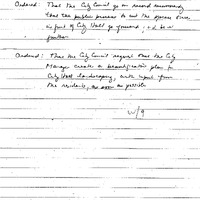 Ordered: That the City Council go on record recommending
that the public process to cut the spruce tree
in front of City Hall go forward, + be it
further
Ordered: That the City Council request that the City
Manager create a beautification plan for
City Hall landscaping, with input from
the residents, as soon as possible
w/9